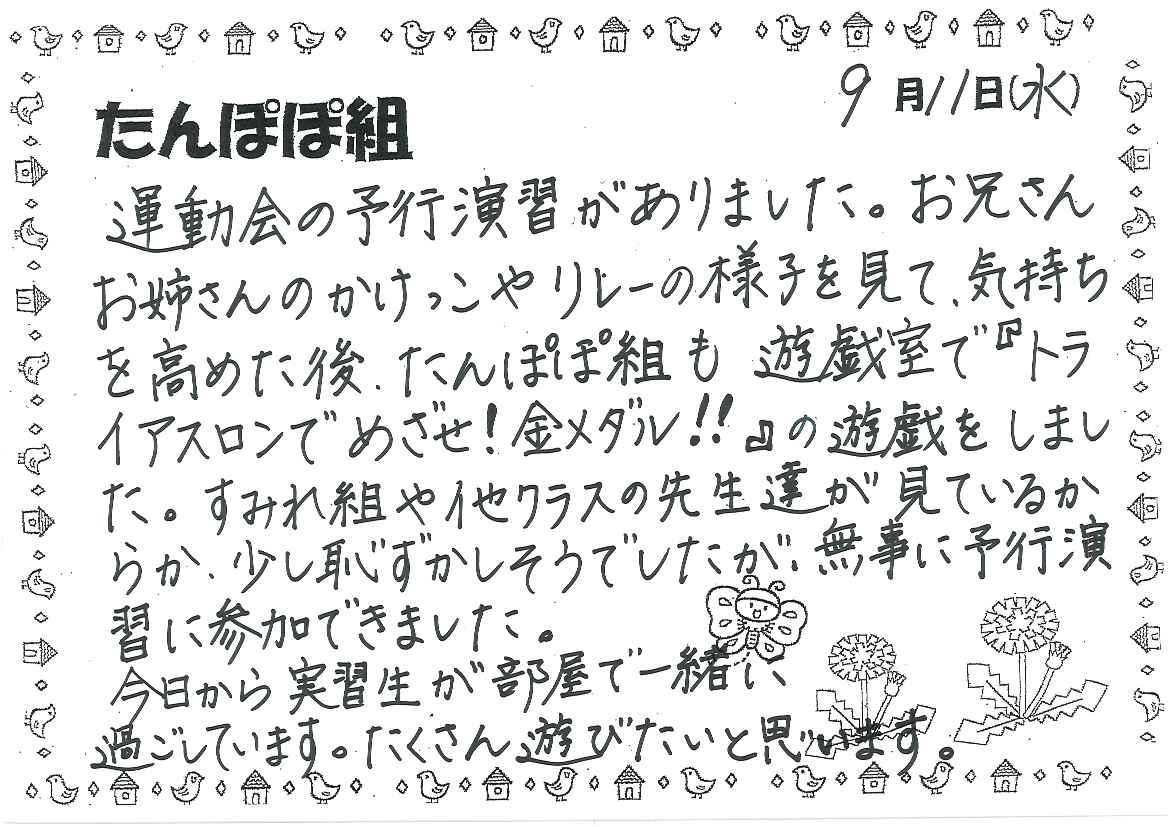 9月11日(水)
たんぽぽ組
運動会の予行演習がありました。お兄さん
お姉さんのかけっこやリレーの様子を見て、気持ち
を高めた後、たんぽぽ組も遊戯室で『トラ
イアスロンでめざせ!金メダル!!』の遊戯をしまし
た。すみれ組や他クラスの先生達が見ているか
らか、少し恥ずかしそうでしたが、無事に予行演
習に参加できました。
今日から実習生が部屋で一緒に
過ごしています。たくさん遊びたいと思います。